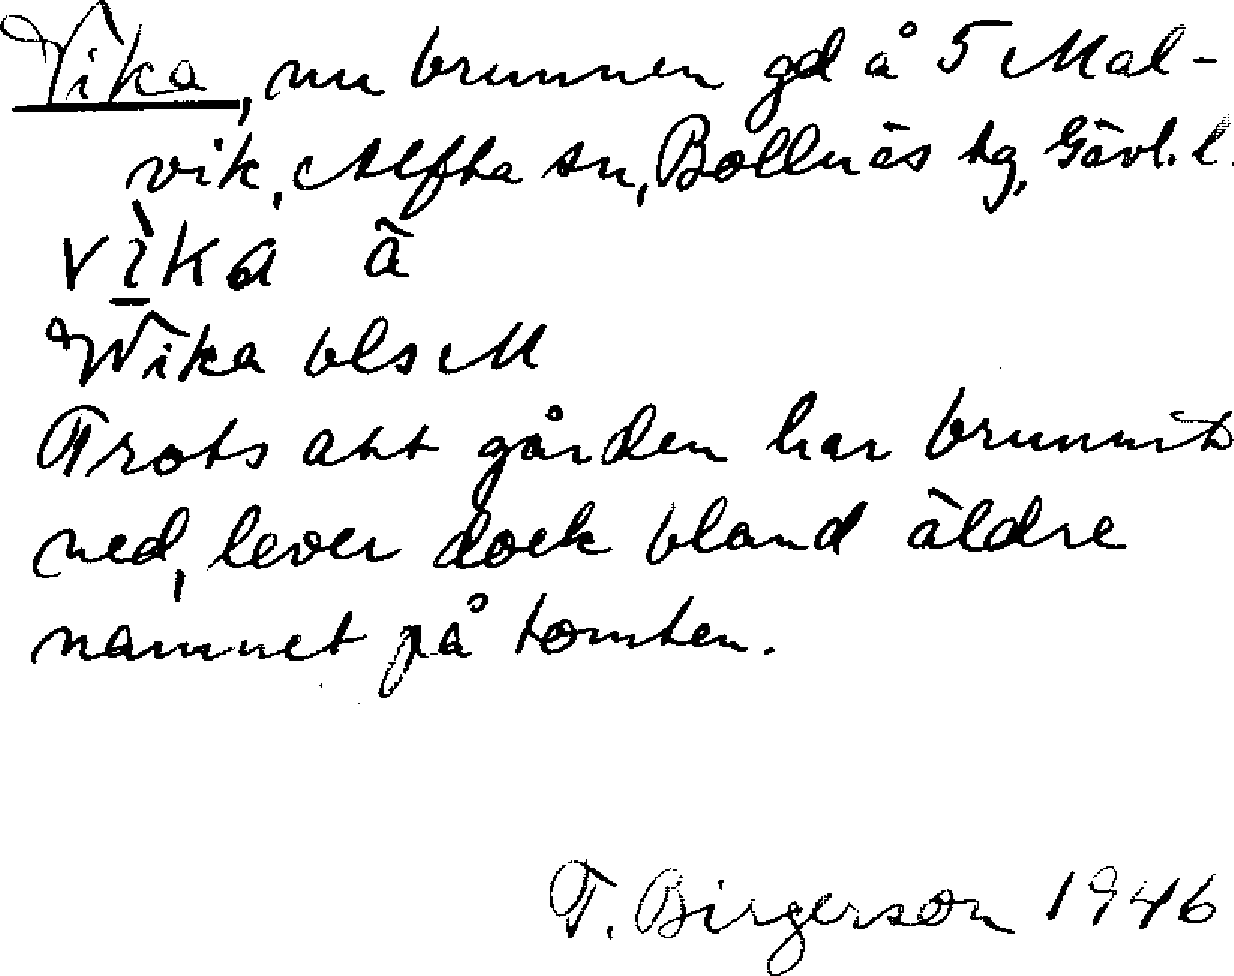 Vika, nu brunnen gd å 5 Mal-
vik, Alfta sn, Bollnäs tg, Gävl. l.
vìka ã
Wika bls M
Trots att gården har brunnit
ned, lever dock bland äldre
namnet på tomten.
T. Birgerson 1946